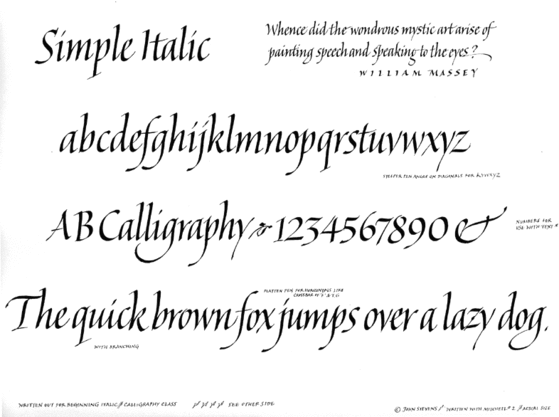 Simple Italic
Whence did the wondrous mystic art arise of
painting speech and speaking to the eyes?
WILLIAM MASSEY
abcdefghijklmnopqrstuvwxyz
STEEPER PEN ANGLE ON DIAGONALS FOR
AB Calligraphy & 1234567890 &
NUMBERS FOR
USE WITH TEXT
FLATTEN PEN FOR
The quick brown fox jumps over a lazy dog.
WITH BRANCHING
WRITTEN OUT FOR BEGINNING ITALIC // CALLIGRAPHY CLASS
SEE OTHER SIDE
© JOHN STEVENS // WRITTEN WITH MITCHELL #2 // ACTUAL SIZE